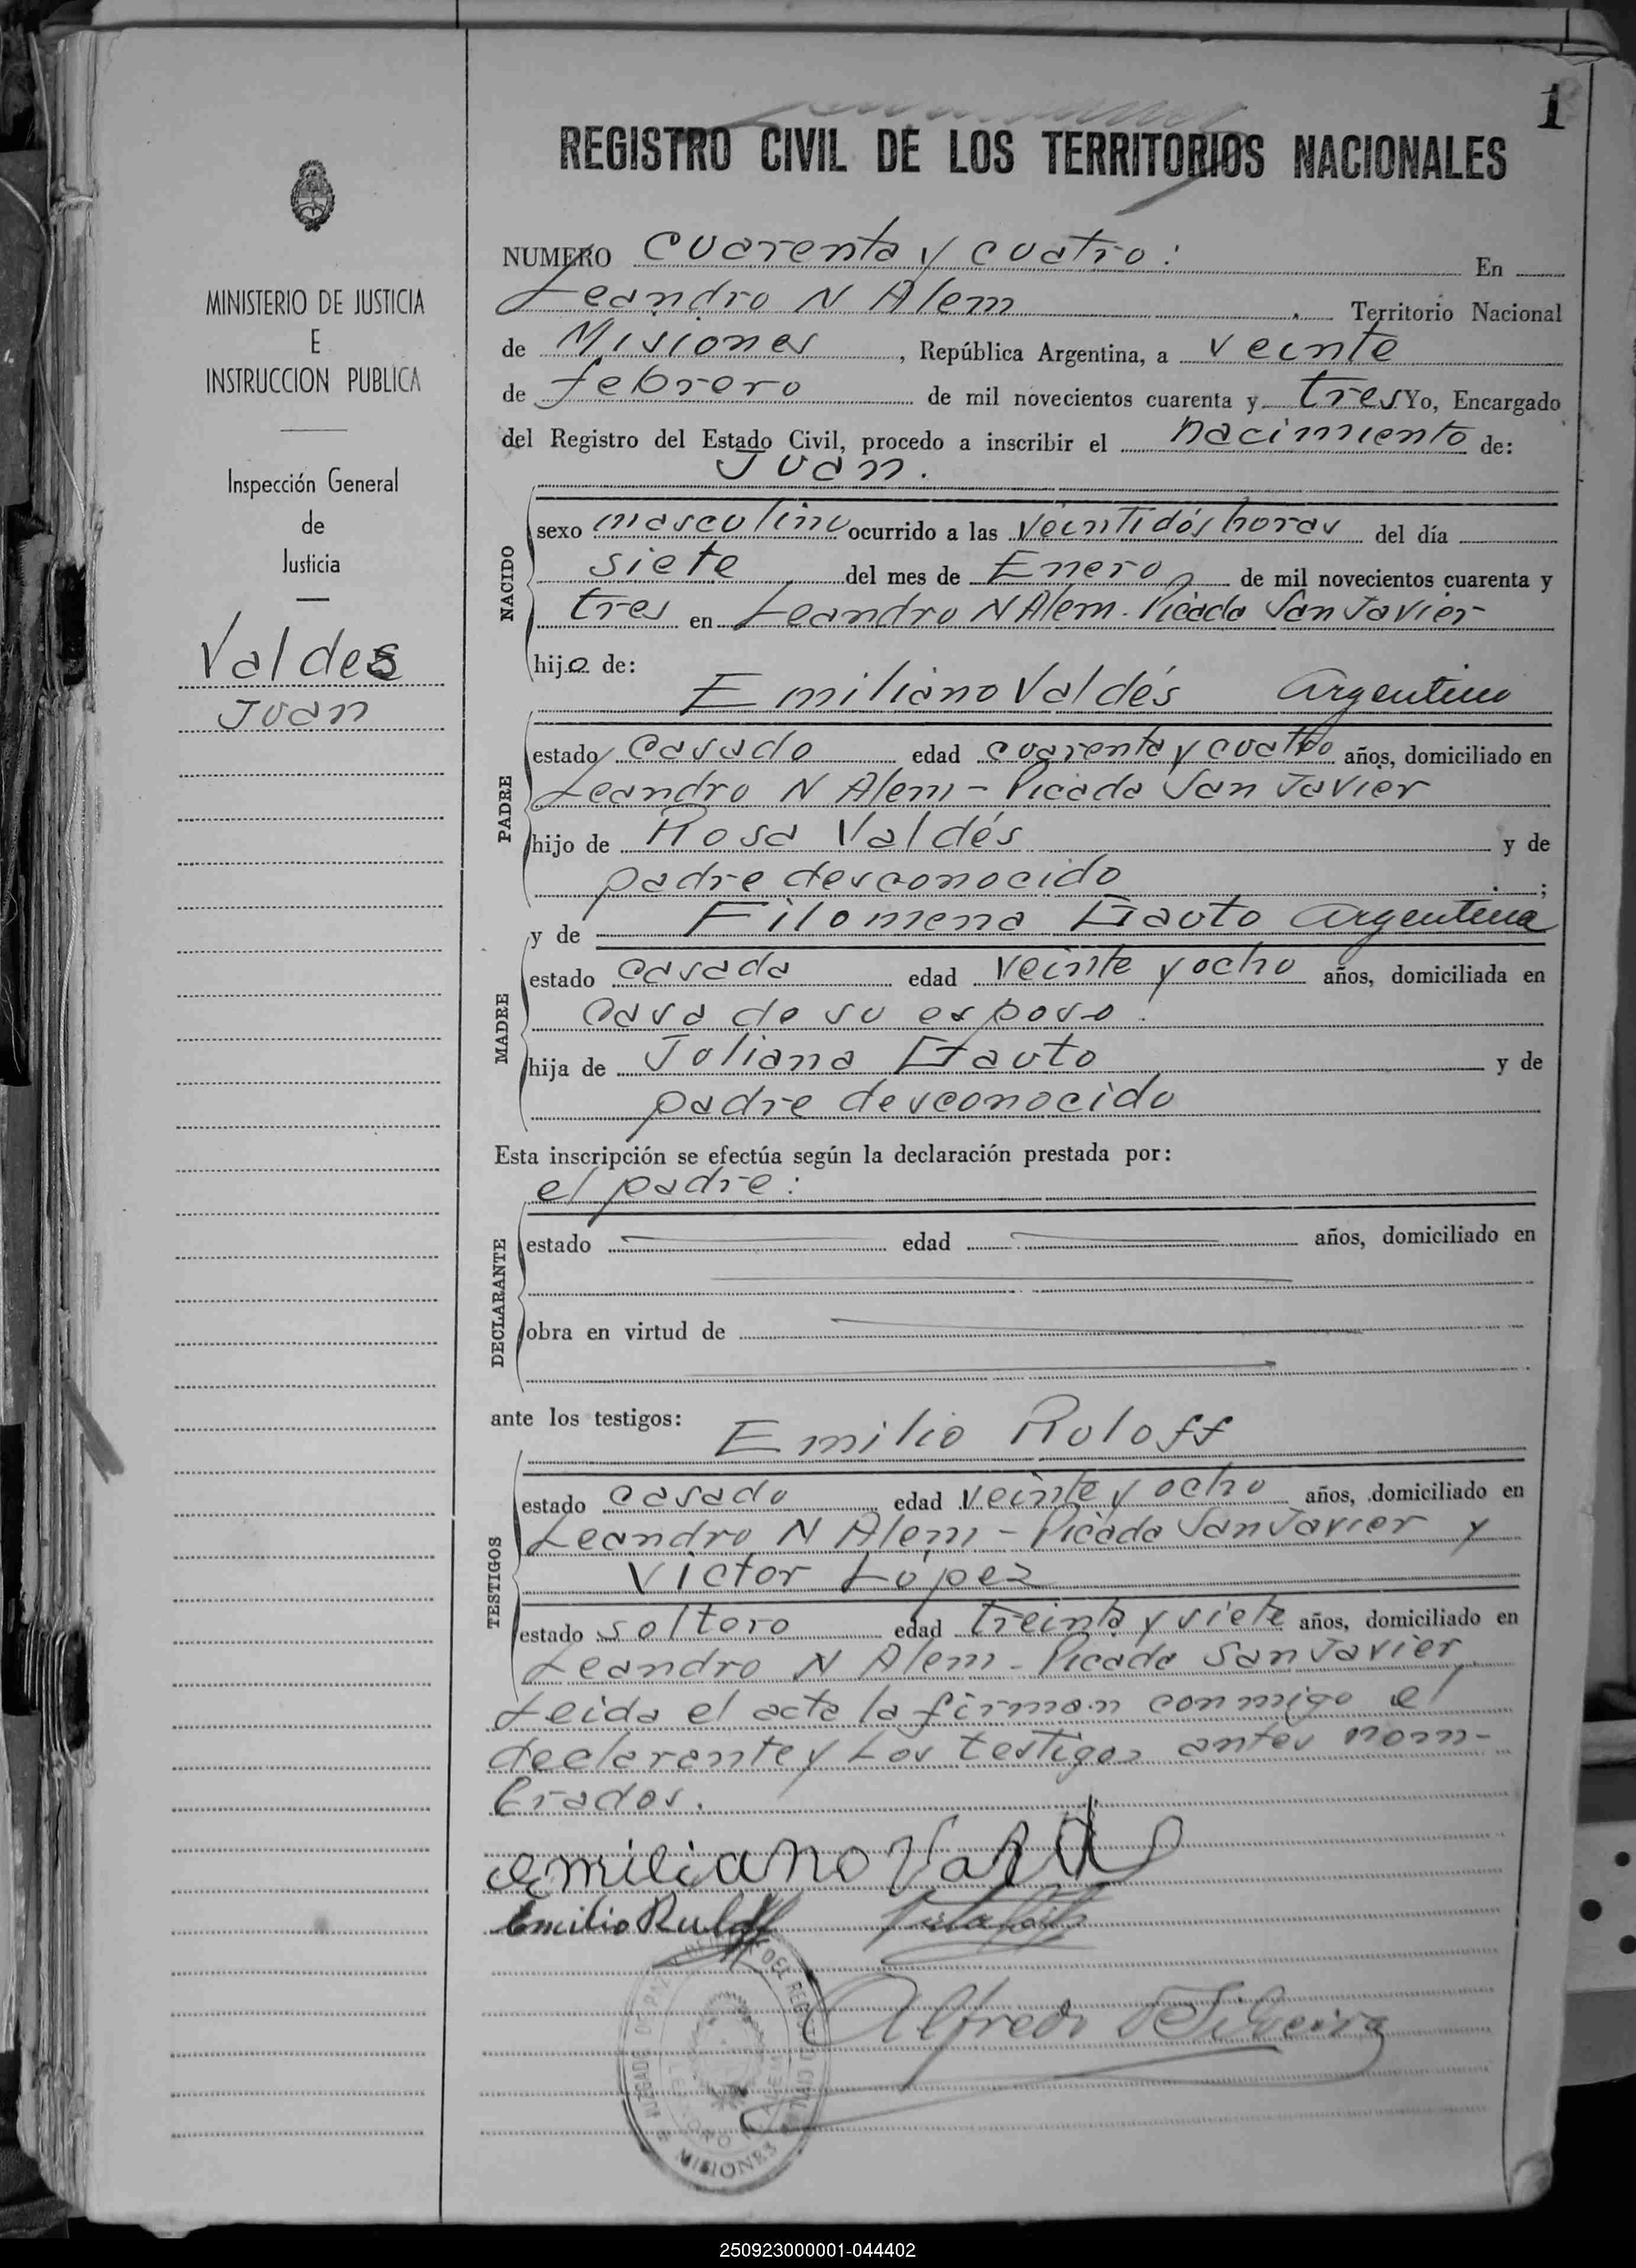 1
REGISTRO CIVIL DE LOS TERRITORIOS NACIONALES
MINISTERIO DE JUSTICIA
E
INSTRUCCION PUBLICA
Inspección General
de
Justicia
Valdes
Juan
NUMERO cuarenta y cuatro: En
Leandro N Alem Territorio Nacional
de Misiones, República Argentina, a veinte
de febrero de mil novecientos cuarenta y tres Yo, Encargado
del Registro del Estado Civil, procedo a inscribir el nacimiento de:
Juan.
NACIDO
sexo masculino ocurrido a las veintidós horas del día
siete del mes de Enero de mil novecientos cuarenta y
tres en Leandro N Alem - Picada San Javier
hijo de:
Emiliano Valdés Argentino
PADRE
estado casado edad cuarenta y cuatro años, domiciliado en
Leandro N Alem - Picada San Javier
hijo de Rosa Valdés y de
padre desconocido ;
y de Filomena Gauto Argentina
MADRE
estado casada edad veinte y ocho años, domiciliada en
casa de su esposo.
hija de Juliana Gauto y de
padre desconocido
Esta inscripción se efectúa según la declaración prestada por:
el padre:
DECLARANTE
estado edad años, domiciliado en
obra en virtud de
ante los testigos:
Emilio Ruloff
TESTIGOS
estado casado edad veinte y ocho años, domiciliado en
Leandro N Alem - Picada San Javier y
Victor López
estado soltero edad treinta y siete años, domiciliado en
Leandro N Alem - Picada San Javier
Leida el acta la firman conmigo el
declarante y los testigos antes nom-
brados.
emiliano Vald
Emilio Ruloff
Alfredo Silveira
JUZGADO DE PAZ DEL REG CIVIL
LEANDRO N ALEM
MISIONES
250923000001-044402